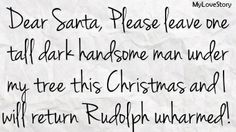 MyLoveStory
Dear Santa, Please leave one
tall dark handsome man under
my tree this Christmas and I
will return Rudolph unharmed!